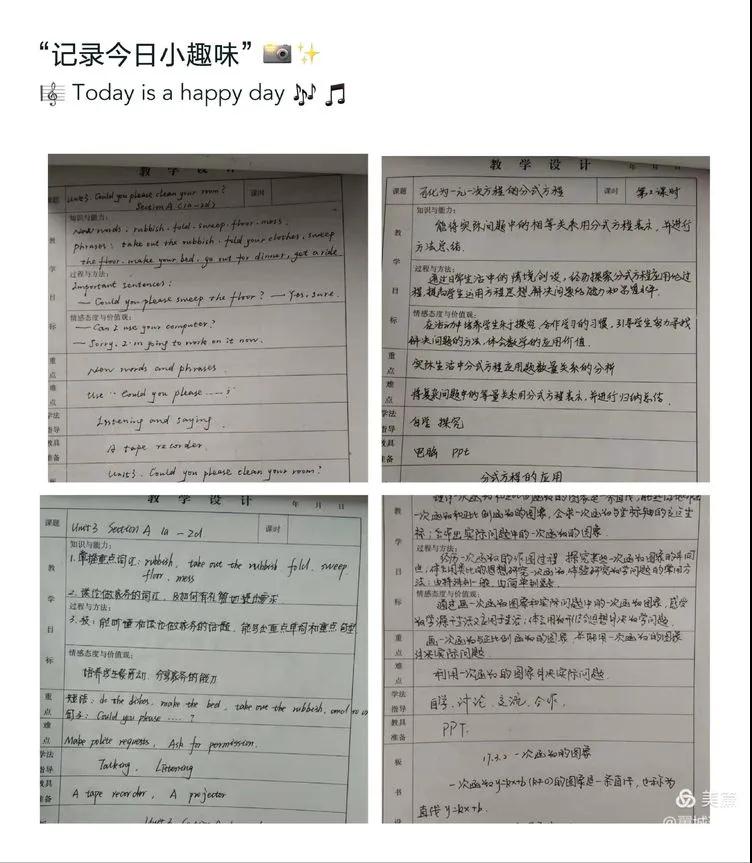 “记录今日小趣味”
Today is a happy day
教学设计
课题
Unit3. Could you please clean your room?
Section A (1a-2d)
课时
教学目标
知识与能力:
New words: rubbish. fold. sweep. floor. mess.
phrases: take out the rubbish. fold your clothes. sweep
the floor. make your bed. go out for dinner. get a ride
过程与方法:
Important sentences:
— Could you please sweep the floor? — Yes, sure.
情感态度与价值观:
— Can I use your computer?
— Sorry. I'm going to work on it now.
重点
New words and phrases.
难点
Use "Could you please
学法指导
Listening and saying.
教具准备
A tape recorder.
Unit3. Could you please clean your room?
教学设计
年 月 日
课题
可化为一元一次方程的分式方程
课时
第2课时
教学目标
知识与能力:
能将实际问题中的相等关系用分式方程表示,并进行
方法总结.
过程与方法:
通过日常生活中的情境创设,经历探索分式方程应用的过
程,提高学生运用方程思想解决问题的能力和思维水平.
情感态度与价值观:
在活动中培养学生乐于探究、合作学习的习惯,引导学生努力寻找
解决问题的方法,体会数学的应用价值.
重点
实际生活中分式方程应用题数量关系的分析
难点
将复杂问题中的等量关系用分式方程表示,并进行归纳总结.
学法指导
自学 探究
教具准备
电脑 ppt
分式方程的应用
教学设计
年 月 日
课题
Unit 3 Section A 1a-2d
课时
教学目标
知识与能力:
1. 掌握重点词汇: rubbish, take out the rubbish fold, sweep
floor. mess
2. 谈论做家务的词汇,及如何有礼貌地提出要求
过程与方法:
3. 教: 能听懂和谈论做家务的话题,能写出重点单词和重点句型
情感态度与价值观:
培养学生爱劳动、分担家务的能力
重点
短语: do the dishes, make the bed, take out the rubbish,
句子: Could you please .... ?
难点
Make polite requests, Ask for permission.
学法指导
Talking, Listening
教具准备
A tape recorder, A projector
教学目标
一次函数和正比例函数的图象,会求一次函数与坐标轴的交点坐
标;会作出实际问题中的一次函数的图象.
过程与方法:
经历一次函数的作图过程 探究某些一次函数图象的异同
点,体会用类比的思想研究一次函数 体验研究数学问题的常用方
法:由特殊到一般,由简单到复杂.
情感态度与价值观:
通过画一次函数图象和实际问题中的一次函数图象,感受
数学源于生活又应用于生活;体会用数形结合思想解决数学问题.
重点
画一次函数与正比例函数的图象,并能用一次函数的图象
解决实际问题
难点
利用一次函数的图象解决实际问题.
学法指导
自学、讨论、交流、合作.
教具准备
PPT.
板书
17.3.2 一次函数的图象
一次函数y=kx+b (k≠0)的图象是一条直线,也称为
直线 y=kx+b.
美篇